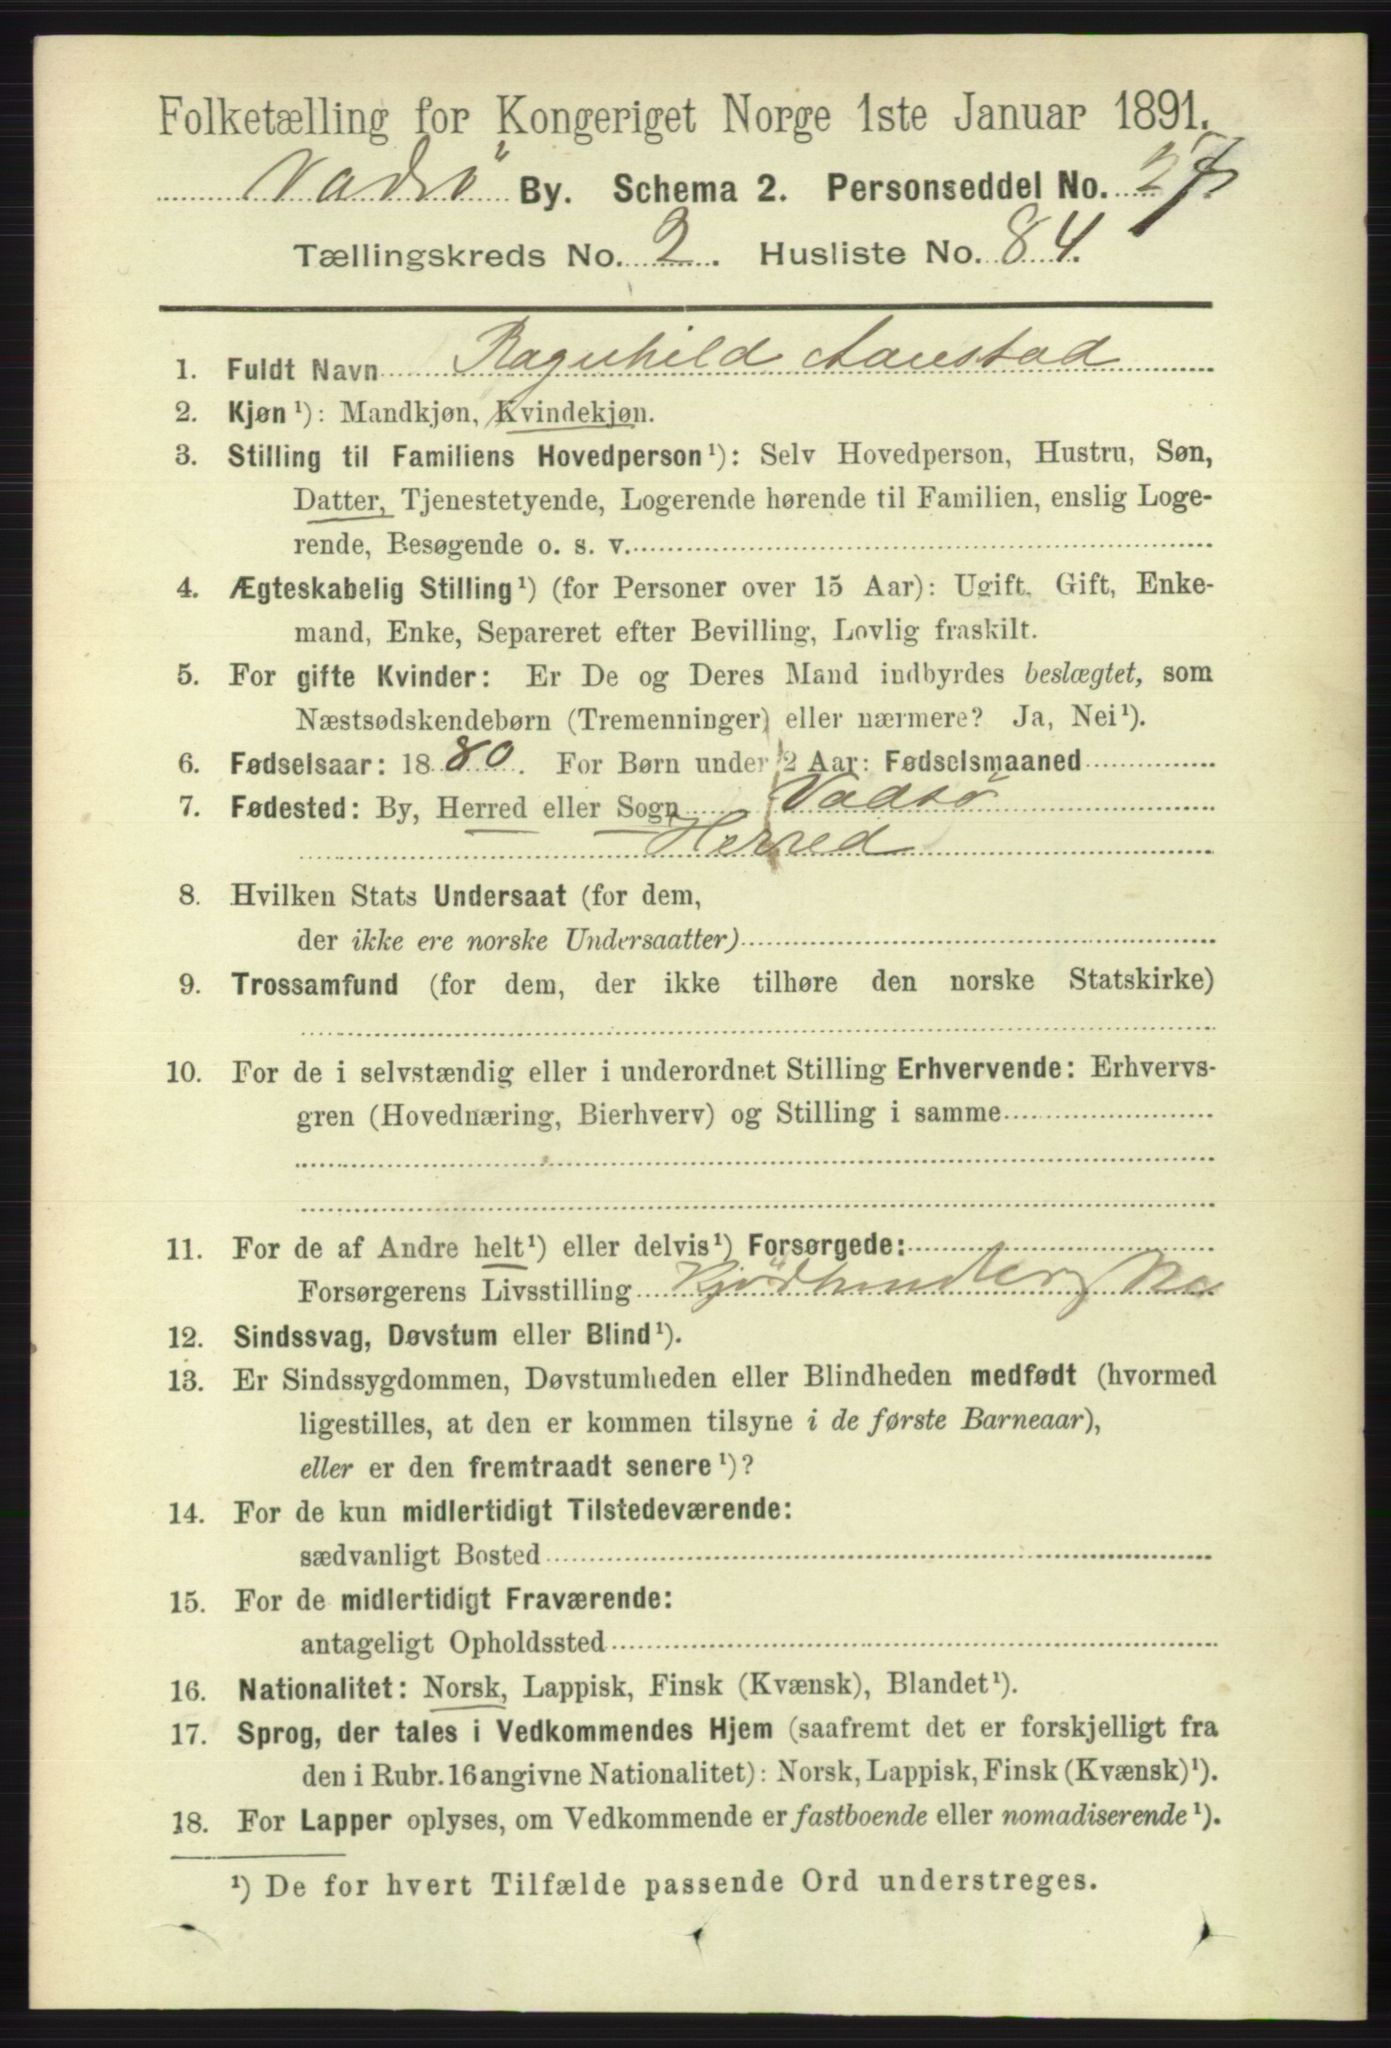 Folketælling for Kongeriget Norge 1ste Januar 1891.
Vadsö By. Schema 2. Personseddel No. 27
Tællingskreds No. 2. Husliste No. 84.
1. Fuldt Navn Ragnhild Aanstad
2. Kjøn ¹): Mandkjøn, Kvindekjøn.
3. Stilling til Familiens Hovedperson ¹): Selv Hovedperson, Hustru, Søn,
Datter, Tjenestetyende, Logerende hørende til Familien, enslig Loge-
rende, Besøgende o. s. v.
4. Ægteskabelig Stilling ¹) (for Personer over 15 Aar): Ugift, Gift, Enke-
mand, Enke, Separeret efter Bevilling, Lovlig fraskilt.
5. For gifte Kvinder: Er De og Deres Mand indbyrdes beslægtet, som
Næstsødskendebørn (Tremenninger) eller nærmere? Ja, Nei ¹).
6. Fødselsaar: 1880. For Børn under 2 Aar: Fødselsmaaned
7. Fødested: By, Herred eller Sogn Vadsö
Herred
8. Hvilken Stats Undersaat (for dem,
der ikke ere norske Undersaatter)
9. Trossamfund (for dem, der ikke tilhøre den norske Statskirke)
10. For de i selvstændig eller i underordnet Stilling Erhvervende: Erhvervs-
gren (Hovednæring, Bierhverv) og Stilling i samme
11. For de af Andre helt ¹) eller delvis ¹) Forsørgede:
Forsørgerens Livsstilling
12. Sindssvag, Døvstum eller Blind ¹).
13. Er Sindssygdommen, Døvstumheden eller Blindheden medfødt (hvormed
ligestilles, at den er kommen tilsyne i de første Barneaar),
eller er den fremtraadt senere ¹)?
14. For de kun midlertidigt Tilstedeværende:
sædvanligt Bosted
15. For de midlertidigt Fraværende:
antageligt Opholdssted
16. Nationalitet: Norsk, Lappisk, Finsk (Kvænsk), Blandet ¹).
17. Sprog, der tales i Vedkommendes Hjem (saafremt det er forskjelligt fra
den i Rubr. 16 angivne Nationalitet): Norsk, Lappisk, Finsk (Kvænsk) ¹).
18. For Lapper oplyses, om Vedkommende er fastboende eller nomadiserende ¹).
¹) De for hvert Tilfælde passende Ord understreges.